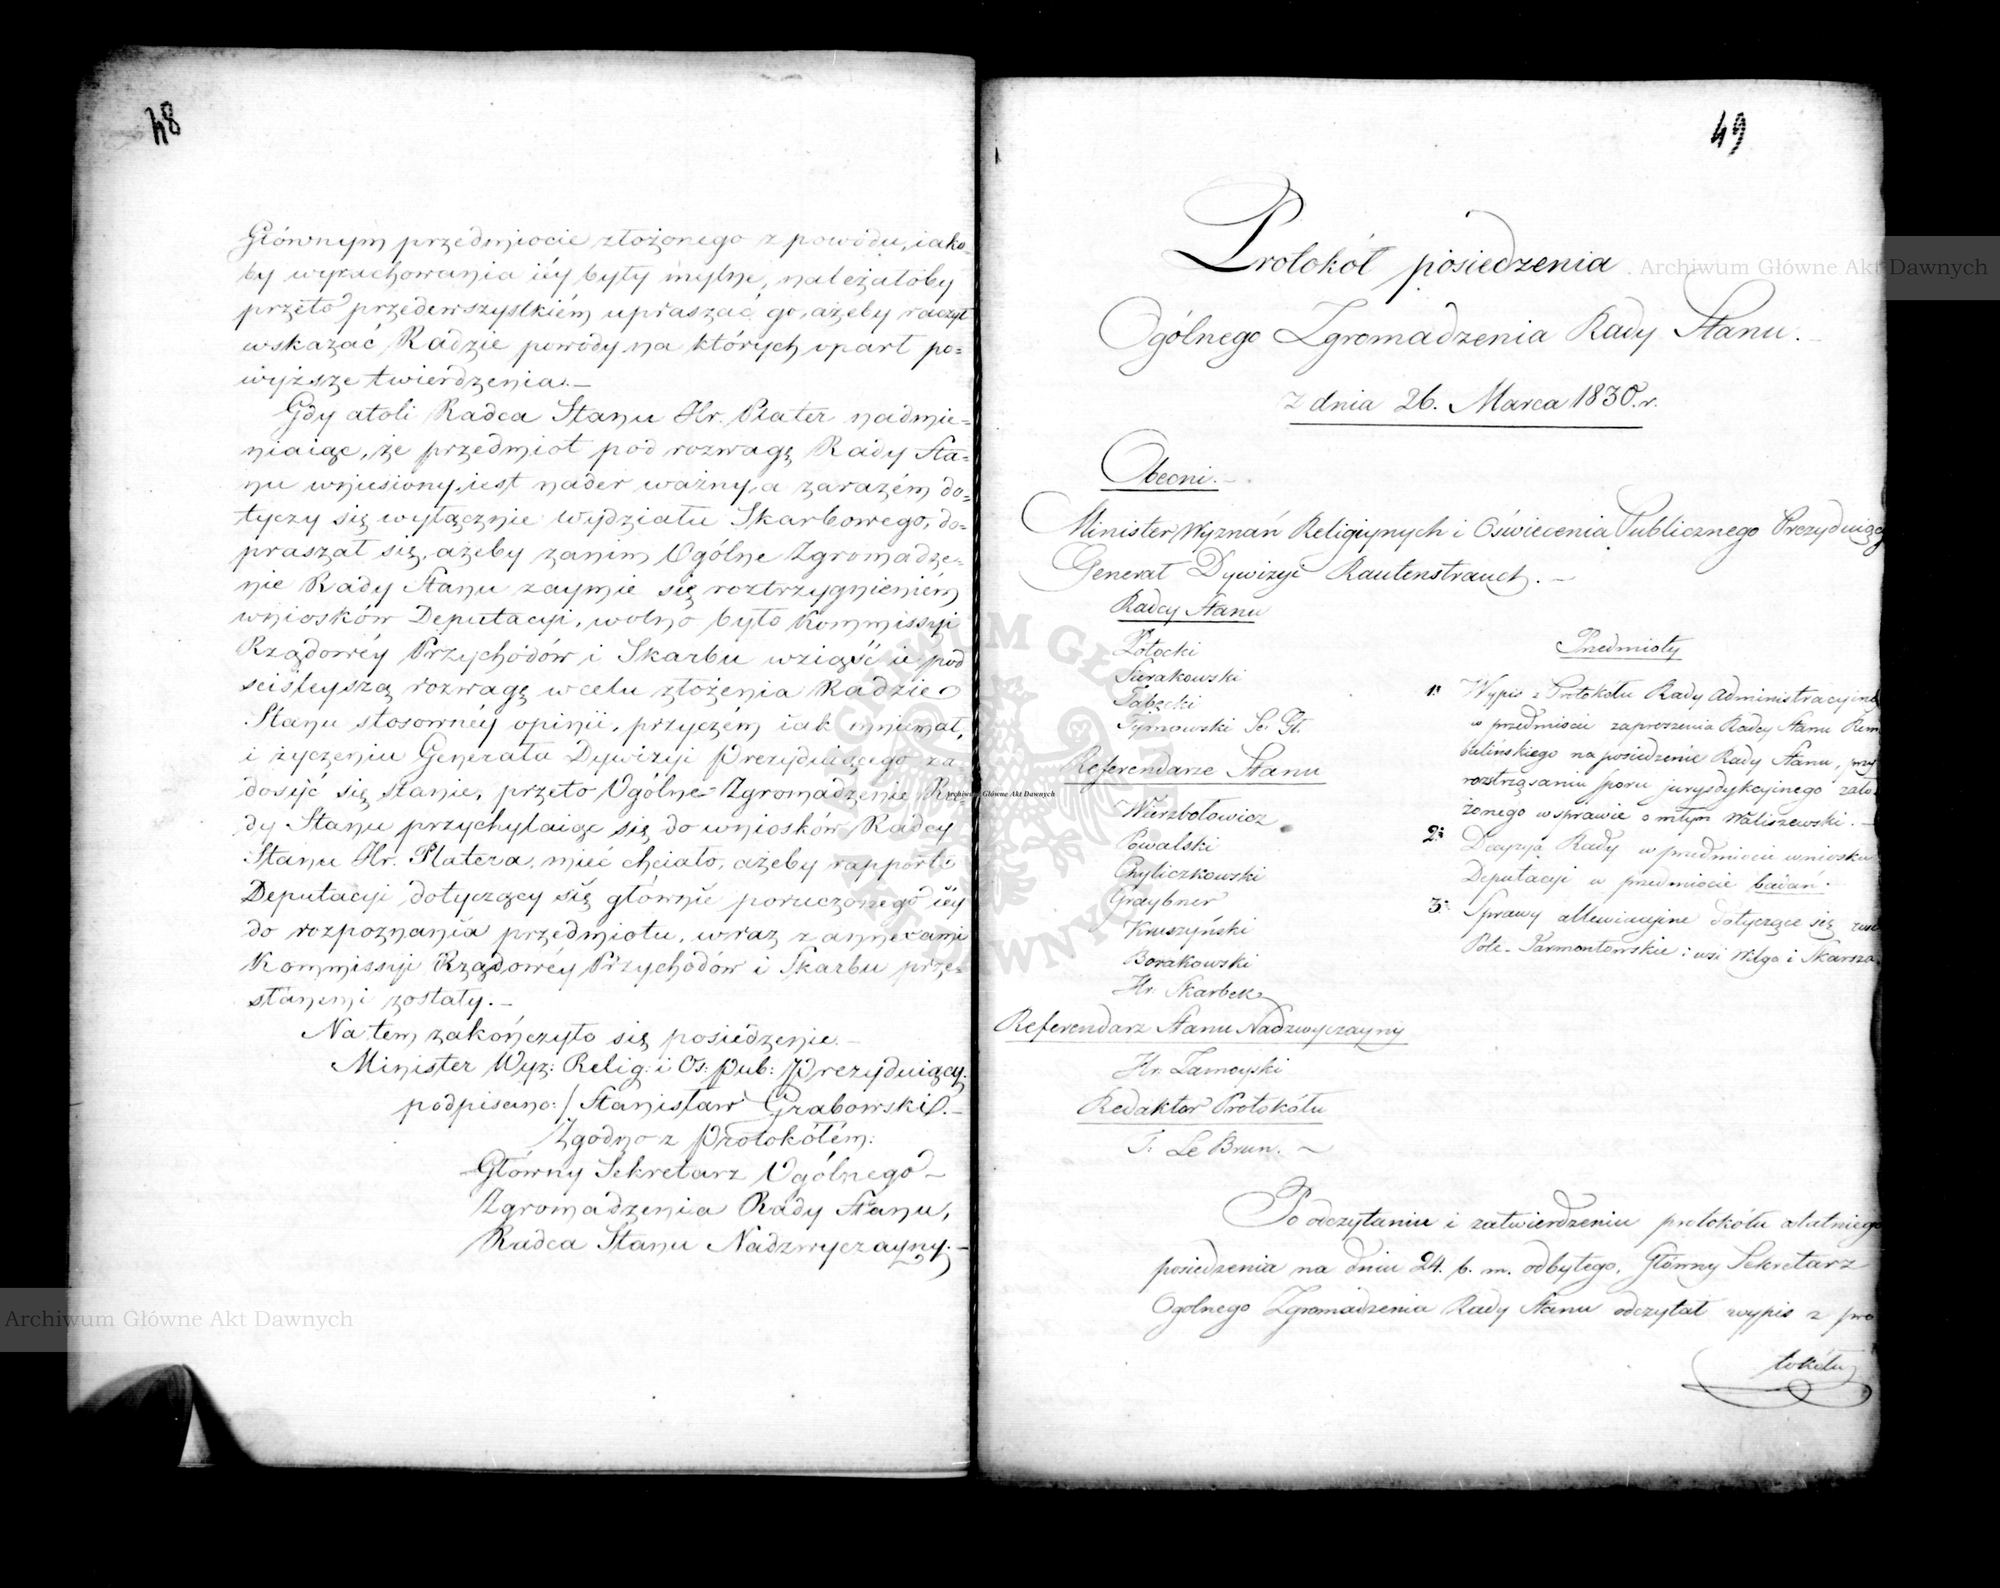 48
Głównym przedmiocie złożonego z powodu, iako-
by wyrachowania iéy były mylne, należałoby
przeto przedewszystkiém upraszać go, ażeby raczył
wskazać Radzie powody na których oparł po=
wyższe twierdzenia.—
Gdy atoli Radca Stanu Hr. Plater nadmie=
niaiąc, że przedmiot pod rozwagę Rady Sta=
nu wniesiony, iest nader ważny, a zarazém do=
tyczy się wyłącznie Wydziału Skarbowego, do=
praszał się, ażeby zanim Ogólne Zgromadze=
nie Rady Stanu zaymie się roztrzygnieniém
wniosków Deputacyi, wolno było Kommissyi
Rządowéy Przychodów i Skarbu wziąść ie pod
ściśleyszą rozwagę w celu złożenia Radzie
Stanu stosownéy opinii, przyczém iak mniemał,
i życzeniu Generała Dywizyi Prezyduiącego za
dosyć się stanie, przeto Ogólne Zgromadzenie Ra=
dy Stanu przychylaiąc się do wniosków Radcy
Stanu Hr. Platera, mieć chciało, ażeby rapporta
Deputacyi dotyczący się głównie poruczonego iéy
do rozpoznania przedmiotu, wraz z annexami
Kommissyi Rządowéy Przychodów i Skarbu prze=
słanemi zostały.—
Na tem zakończyło się posiedzenie.—
Minister Wyz: Relig: i Oś: Pub: Prezyduiący.
podpisano:/ Stanisław Grabowski.—
Zgodno z Protokółém:
Główny Sekretarz Ogólnego—
Zgromadzenia Rady Stanu,
Radca Stanu Nadzwyczayny.—
49
Protokół posiedzenia
Ogólnego Zgromadzenia Rady Stanu.—
z dnia 26. Marca 1830. r.
Obecni.—
Minister Wyznań Religiynych i Oświecenia Publicznego Prezyduiący
Generał Dywizyi Rautenstrauch.—
Radcy Stanu
Potocki
Surakowski
Tymowski Se. Gł.
Referendarze Stanu
Wierzbołowicz
Powalski
Chyliczkowski
Graybner
Kruszyński
Borakowski
Hr. Skarbek
Referendarz Stanu Nadzwyczayny
Hr. Zamoyski
Redaktor Protokółu
T: Le Brun.—
Przedmioty
1º Wypis z Protokółu Rady Administracyinéy
w przedmiocie zaproszenia Radcy Stanu Rem
bielińskiego na posiedzenie Rady Stanu, przy
roztrząsaniu sporu jurysdykcyinego zało-
żonego w sprawie o młyn Waliszewski.—
2º Decyzya Rady w przedmiocie wniosku
Deputacyi w przedmiocie badań.
3º Sprawy allewiacyine dotyczące się
Pole-Jarmontowskie i wsi Wilga i Skurcza.
Po odczytaniu i zatwierdzeniu protokółu ostatniego
posiedzenia na dniu 24. b. m. odbytego, Główny Sekretarz
Ogólnego Zgromadzenia Rady Stanu odczytał wypis z pro
tokółu
Archiwum Główne Akt Dawnych
Archiwum Główne Akt Dawnych
Archiwum Główne Akt Dawnych
ARCHIWUM GŁÓWNE AKT DAWNYCH